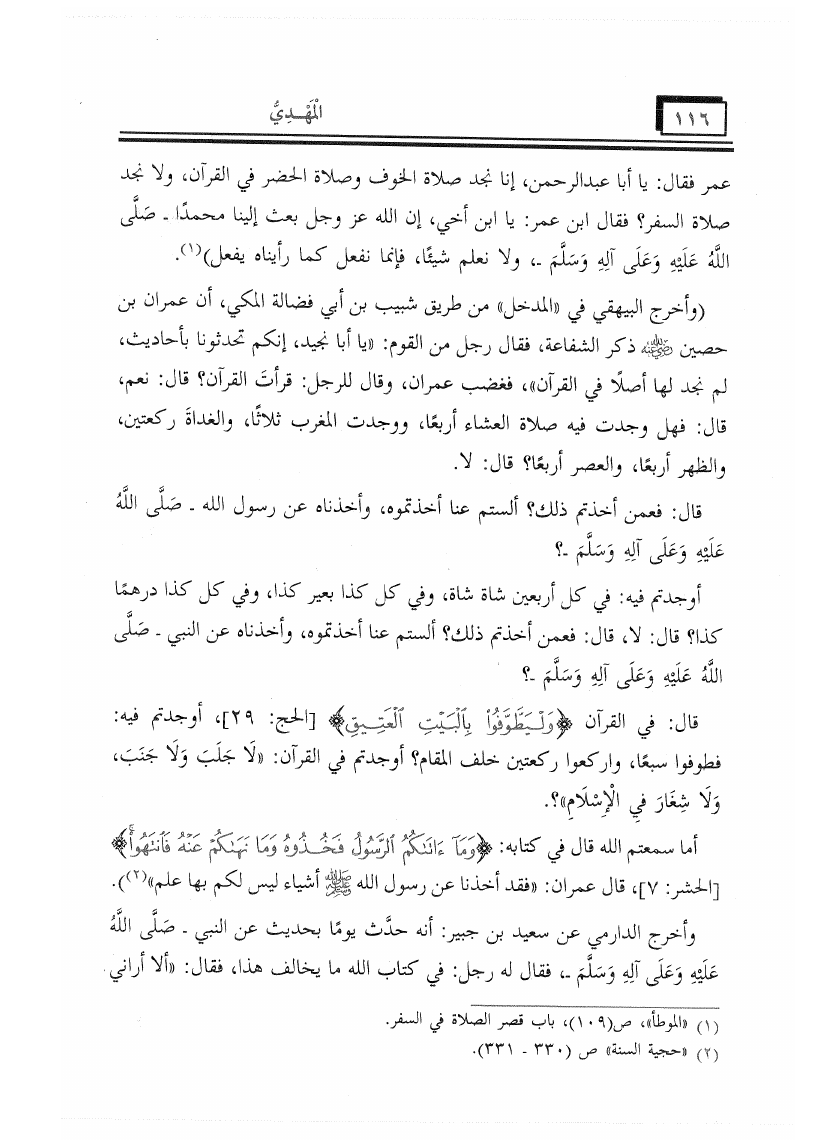 ١١٦
الْمَهْدِيُّ
عمر فقال: يا أبا عبدالرحمن، إنا نجد صلاة الخوف وصلاة الحضر في القرآن، ولا نجد
صلاة السفر؟ فقال ابن عمر: يا ابن أخي، إن الله عز وجل بعث إلينا محمدًا ـ صَلَّى
اللَّهُ عَلَيْهِ وَعَلَى آلِهِ وَسَلَّمَ ـ، ولا نعلم شيئًا، فإنما نفعل كما رأيناه يفعل)(١).
(وأخرج البيهقي في «المدخل» من طريق شبيب بن أبي فضالة المكي، أن عمران بن
حصين رضي الله عنه ذكر الشفاعة، فقال رجل من القوم: «يا أبا نجيد، إنكم تحدثونا بأحاديث،
لم نجد لها أصلًا في القرآن»، فغضب عمران، وقال للرجل: قرأتَ القرآن؟ قال: نعم،
قال: فهل وجدت فيه صلاة العشاء أربعًا، ووجدت المغرب ثلاثًا، والغداةَ ركعتين،
والظهر أربعًا، والعصر أربعًا؟ قال: لا.
قال: فعمن أخذتم ذلك؟ ألستم عنا أخذتموه، وأخذناه عن رسول الله ـ صَلَّى اللَّهُ
عَلَيْهِ وَعَلَى آلِهِ وَسَلَّمَ ـ؟
أوجدتم فيه: في كل أربعين شاة شاة، وفي كل كذا بعير كذا، وفي كل كذا درهمًا
كذا؟ قال: لا، قال: فعمن أخذتم ذلك؟ ألستم عنا أخذتموه، وأخذناه عن النبي ـ صَلَّى
اللَّهُ عَلَيْهِ وَعَلَى آلِهِ وَسَلَّمَ ـ؟
قال: في القرآن ﴿وَلْيَطَّوَّفُوا۟ بِالْبَيْتِ الْعَتِيقِ﴾ [الحج: ٢٩]، أوجدتم فيه:
فطوفوا سبعًا، واركعوا ركعتين خلف المقام؟ أوجدتم في القرآن: «لَا جَلَبَ وَلَا جَنَبَ،
وَلَا شِغَارَ فِي الْإِسْلَامِ»؟.
أما سمعتم الله قال في كتابه: ﴿وَمَآ ءَاتَىٰكُمُ ٱلرَّسُولُ فَخُذُوهُ وَمَا نَهَىٰكُمْ عَنْهُ فَٱنتَهُوا۟ۚ﴾
[الحشر: ٧]، قال عمران: «فقد أخذنا عن رسول الله ﷺ أشياء ليس لكم بها علم»(٢)).
وأخرج الدارمي عن سعيد بن جبير: أنه حدَّث يومًا بحديث عن النبي ـ صَلَّى اللَّهُ
عَلَيْهِ وَعَلَى آلِهِ وَسَلَّمَ ـ، فقال له رجل: في كتاب الله ما يخالف هذا، فقال: «ألا أراني
(١) «الموطأ»، ص(١٠٩)، باب قصر الصلاة في السفر.
(٢) «حجية السنة» ص (٣٣٠ ـ ٣٣١).